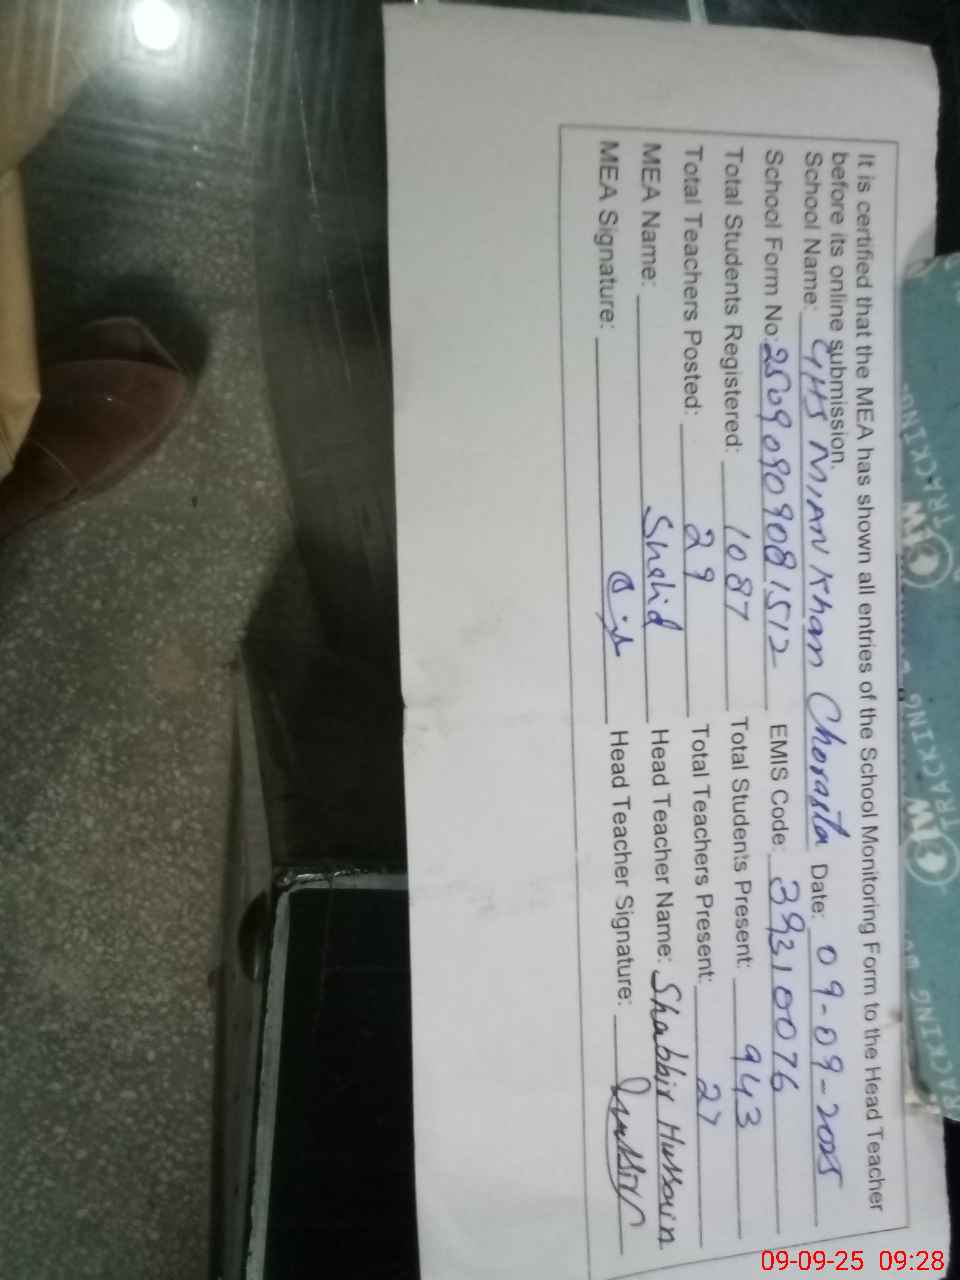 It is certified that the MEA has shown all entries of the School Monitoring Form to the Head Teacher
before its online submission.
School Name: GHS MIAN Khan Chorasta Date: 09-09-2025
School Form No: 25090909081512 EMIS Code: 39310076
Total Students Registered: 1087 Total Students Present: 943
Total Teachers Posted: 29 Total Teachers Present: 27
MEA Name: Shahid Head Teacher Name: Shabbir Hussain
MEA Signature: Head Teacher Signature:
TRACKING
TRACKING
TRACKING
09-09-25 09:28